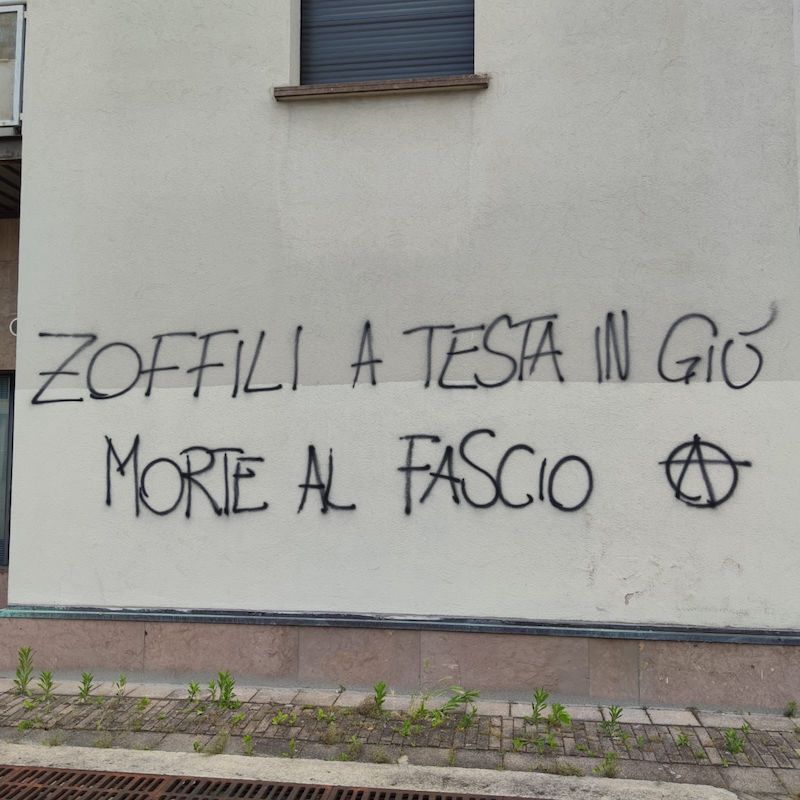 ZOFFILI A TESTA IN GIÚ
MORTE AL FASCIO Ⓐ